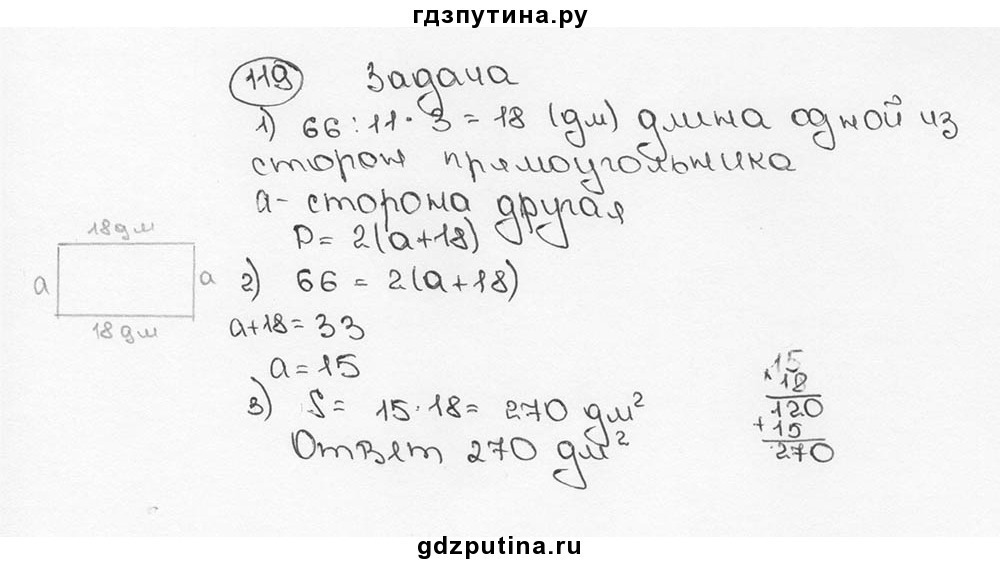 гдзпутина.ру
119 Задача
1) 66:11·3=18 (дм) длина одной из
сторон прямоугольника
а- сторона другая
P= 2(a+18)
18 дм
a
a
18 дм
2) 66 = 2(a+18)
a+18=33
a=15
3) S= 15·18= 270 дм²
Ответ 270 дм²
15
× 18
120
+ 15
270
gdzputina.ru